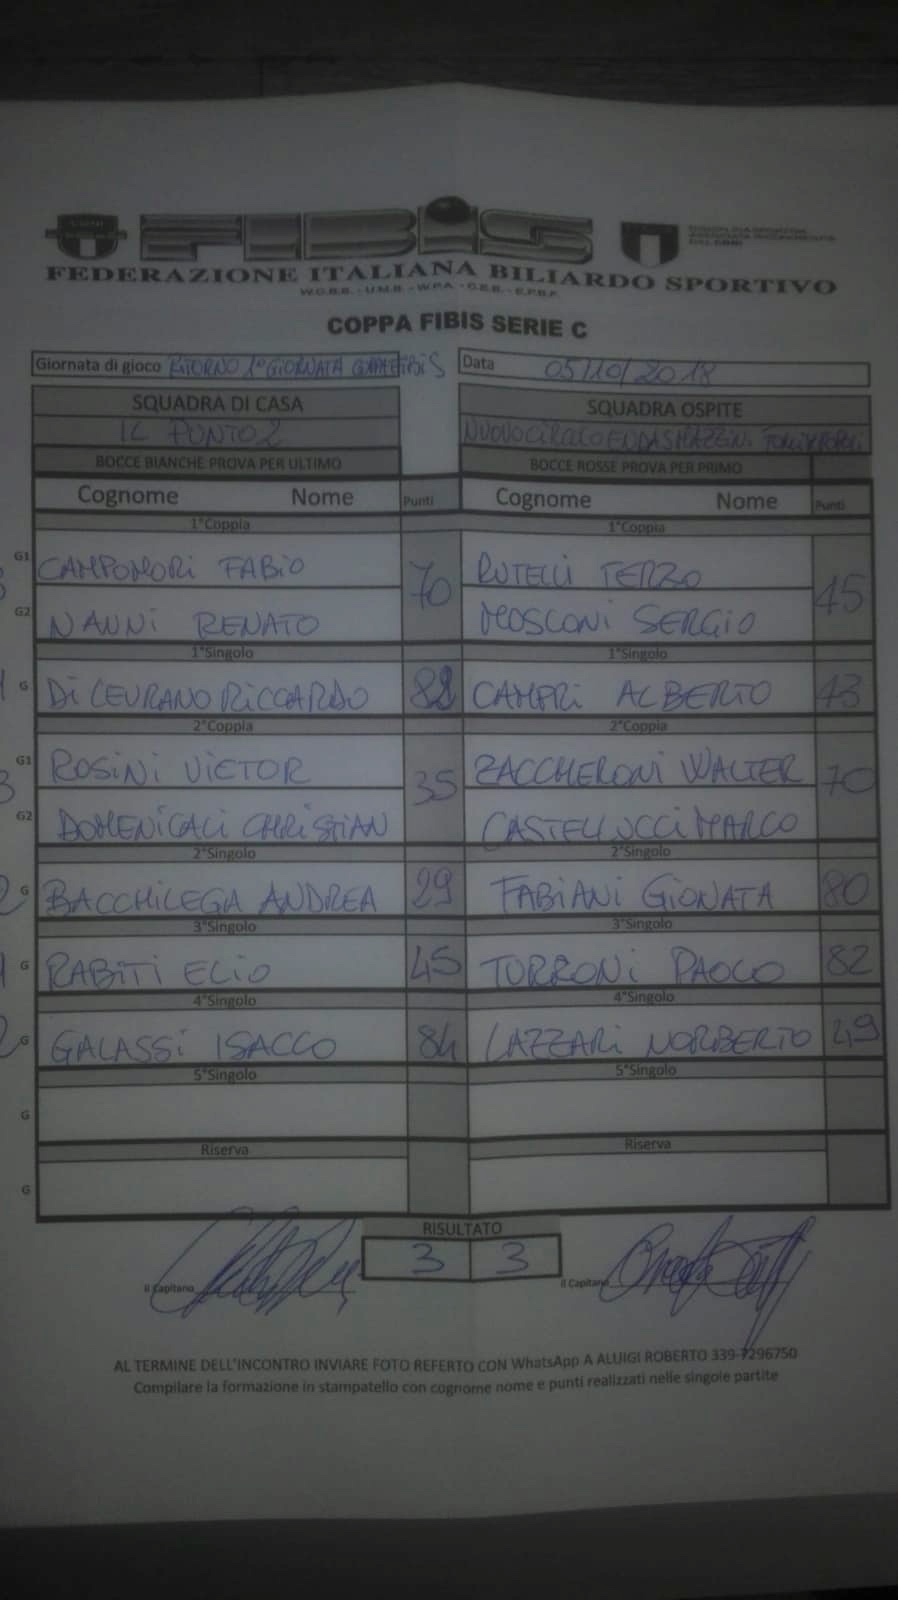 FIBIS
FEDERAZIONE ITALIANA BILIARDO SPORTIVO
W.C.B.S. - U.M.B. - W.P.A. - C.E.B. - E.P.B.F.
COPPA FIBIS SERIE C
Giornata di gioco RITORNO 1° GIORNATA COPPA FIBIS
Data 05/10/2018
SQUADRA DI CASA
IL PUNTO 2
SQUADRA OSPITE
NUOVO CIRCOLO ENDAS MAZZINI
BOCCE BIANCHE PROVA PER ULTIMO
BOCCE ROSSE PROVA PER PRIMO
Cognome Nome Punti Cognome Nome Punti
1°Coppia 1°Coppia
G1 CAMPOMORI FABIO 70 RUTELLI TERZO 45
G2 NANNI RENATO MOSCONI SERGIO
1°Singolo 1°Singolo
G DI LEVRANO RICCARDO 82 CAMPRI ALBERTO 43
2°Coppia 2°Coppia
G1 ROSINI VICTOR 35 ZACCHERONI WALTER 70
G2 DOMENICALI CHRISTIAN CASTELLUCCI MARCO
2°Singolo 2°Singolo
G BACCHILEGA ANDREA 29 FABIANI GIONATA 80
3°Singolo 3°Singolo
G RABITI ELIO 45 TORRONI PAOLO 82
4°Singolo 4°Singolo
G GALASSI ISACCO 84 LAZZARI NORBERTO 49
5°Singolo 5°Singolo
G
Riserva Riserva
G
RISULTATO
3 3
Il Capitano
Il Capitano
AL TERMINE DELL'INCONTRO INVIARE FOTO REFERTO CON WhatsApp A ALUIGI ROBERTO 339-7296750
Compilare la formazione in stampatello con cognome nome e punti realizzati nelle singole partite